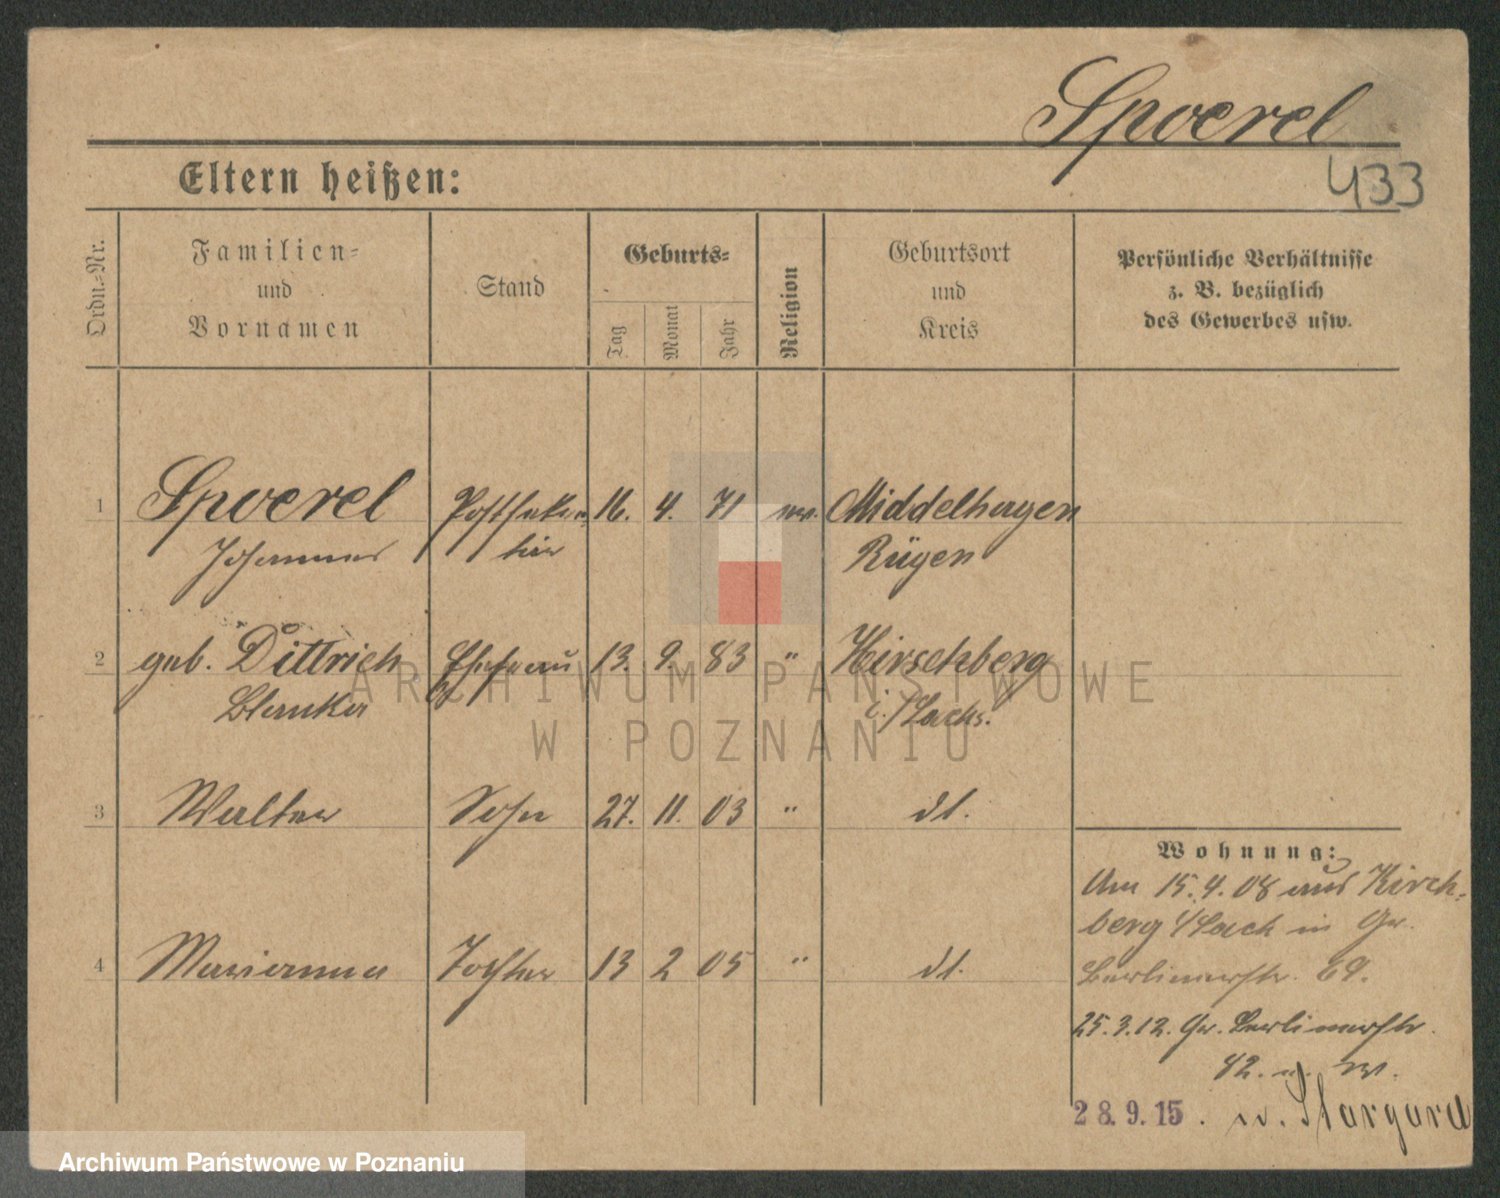 Spoerel
433
Eltern heißen:
Ordn.-Nr.
Familien-
und
Vornamen
Stand
Geburts-
Tag
Monat
Jahr
Religion
Geburtsort
und
Kreis
Persönliche Verhältnisse
z. B. bezüglich
des Gewerbes usw.
1 Spoerel 16. 4. 71 Middelhagen
Johannes Rügen
2 geb. Dittrich Ehefrau 13. 9. 83 " Hirschberg
Blanka
3 Walter Sohn 27. 11. 03 " dt.
4 Marianna Tochter 13 2 05 " dt.
Wohnung:
Am 15.4.08 aus Kirch-
berg in Gr.
Berlinerstr. 69.
25.3.12. Gr. Berlinerstr.
42.
28.9.15. n. Stargard
ARCHIWUM PAŃSTWOWE
W POZNANIU
Archiwum Państwowe w Poznaniu